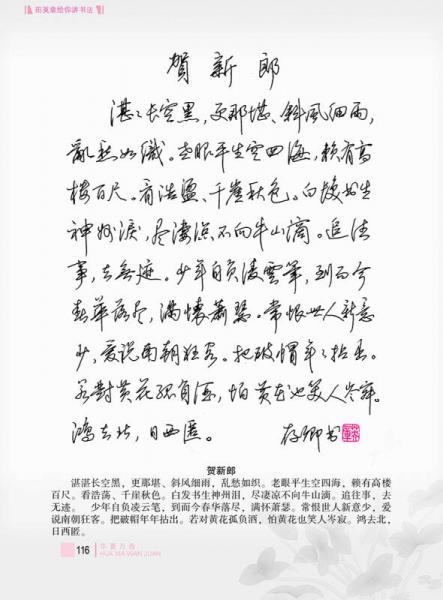 田英章给你讲书法
贺新郎
湛湛长空黑，更那堪、斜风细雨，
亂愁如織。老眼平生空四海，賴有高
樓百尺。看浩蕩、千崖秋色。白髮书生
神州淚，尽凄凉不向牛山滴。追往
事，去無迹。少年自负凌雲筆，到而今
春華落尽，满懷蕭瑟。常恨世人新意
少，爱说南朝狂客。把破帽年年拈出。
若對黄花孤负酒，怕黄花也笑人岑寂。
鸿去北，日西匿。
存卿书
贺新郎
湛湛长空黑，更那堪、斜风细雨，乱愁如织。老眼平生空四海，赖有高楼
百尺。看浩荡、千崖秋色。白发书生神州泪，尽凄凉不向牛山滴。追往事，去
无迹。 少年自负凌云笔，到而今春华落尽，满怀萧瑟。常恨世人新意少，爱
说南朝狂客。把破帽年年拈出。若对黄花孤负酒，怕黄花也笑人岑寂。鸿去北，
日西匿。
116
华夏万卷
HUA XIA WAN JUAN